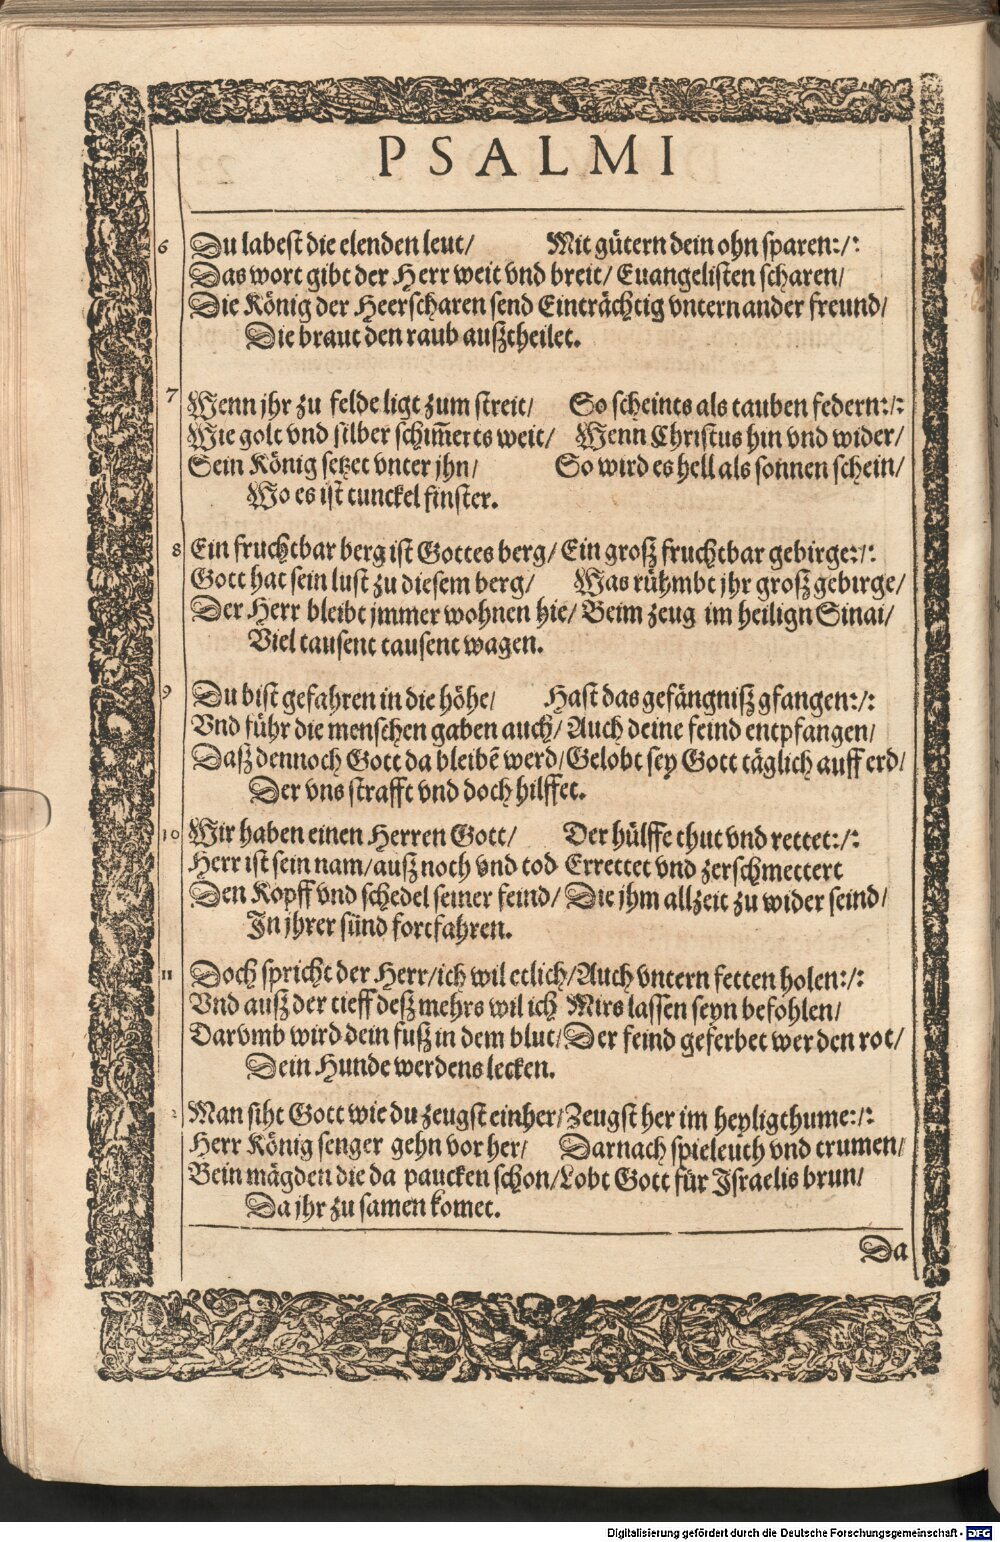 PSALMI
6 Du labest die elenden leut/ Mit gütern dein ohn sparen:/:
Das wort gibt der Herr weit vnd breit/ Euangelisten scharen/
Die König der Heerscharen send Einträchtig vntern ander freund/
Die braut den raub außtheilet.
7 Wenn jhr zu felde ligt zum streit/ So scheints als tauben federn:/:
Wie golt vnd silber schim̃erts weit/ Wenn Christus hin vnd wider/
Sein König setzet vnter jhn/ So wird es hell als sonnen schein/
Wo es ist tunckel finster.
8 Ein fruchtbar berg ist Gottes berg/ Ein groß fruchtbar gebirge:/:
Gott hat sein lust zu diesem berg/ Was rühmbt jhr groß gebirge/
Der Herr bleibt jmmer wohnen hie/ Beim zeug im heilign Sinai/
Viel tausent tausent wagen.
9 Du bist gefahren in die höhe/ Hast das gefängniß gfangen:/:
Vnd führ die menschen gaben auch/ Auch deine feind entpfangen/
Daß dennoch Gott da bleibẽ werd/ Gelobt sey Gott täglich auff erd/
Der vns strafft vnd doch hilffet.
10 Wir haben einen Herren Gott/ Der hülffe thut vnd rettet:/:
Herr ist sein nam/ auß noch vnd tod Errettet vnd zerschmettert
Den Kopff vnd schedel seiner feind/ Die jhm allzeit zu wider seind/
In jhrer sünd fortfahren.
11 Doch spricht der Herr/ ich wil etlich/ Auch vntern fetten holen:/:
Vnd auß der tieff deß mehrs wil ich Mirs lassen seyn befohlen/
Darvmb wird dein fuß in dem blut/ Der feind geferbet werden rot/
Dein Hunde werdens lecken.
2 Man siht Gott wie du zeugst einher/ Zeugst her im heyligthume:/:
Herr König senger gehn vor her/ Darnach spieleuth vnd trumen/
Bein mägden die da paucken schon/ Lobt Gott für Israelis brun/
Da jhr zu samen komet.
Da
Digitalisierung gefördert durch die Deutsche Forschungsgemeinschaft - DFG